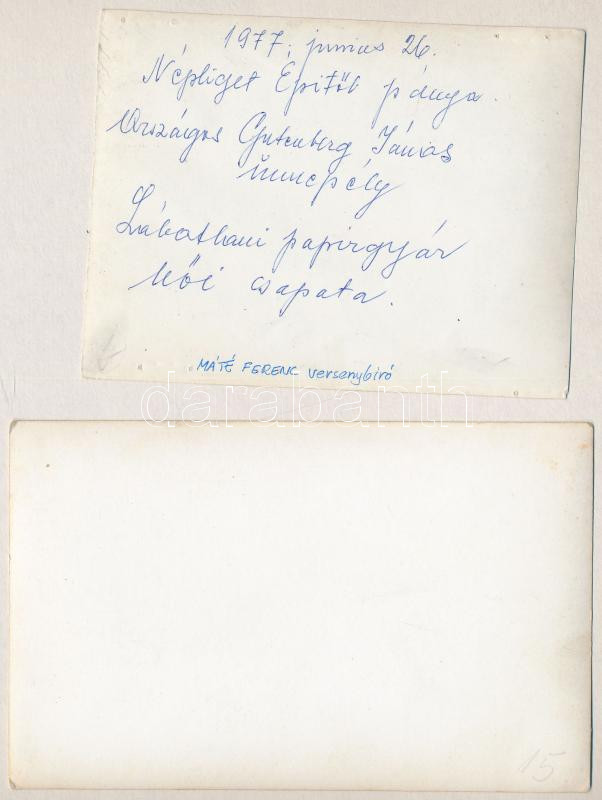 1977. junius 26.
Népliget Építők pánya.
Országos Gutenberg János
ünnepély
Lábatlani papirgyár
Női csapata.
MÁTÉ FERENC versenybíró
darabanth.com
15